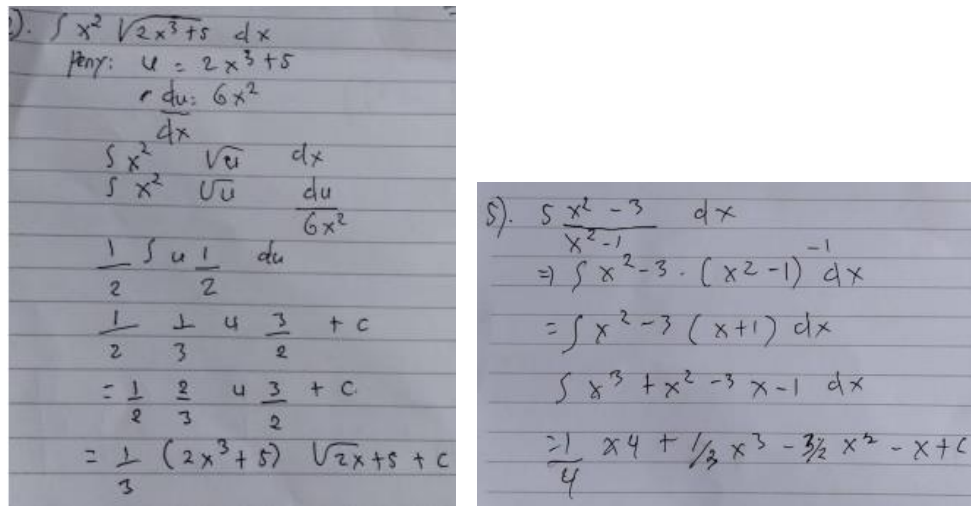 ). ∫ x² √2x³+5 dx
Peny: u = 2x³+5
du = 6x²
dx
∫ x² √u dx
∫ x² √u du
6x²
1/2 ∫ u 1/2 du
1/2 1/3 u 3/2 + c
= 1/2 2/3 u 3/2 + c.
= 1/3 (2x³+5) √2x+5 + c
5). ∫ x² - 3 dx
x² - 1
=> ∫ x² - 3 . (x2 - 1)⁻¹ dx
= ∫ x² - 3 (x+1) dx
∫ x³ + x² - 3x - 1 dx
= 1/4 x4 + 1/3 x³ - 3/2 x² - x + c